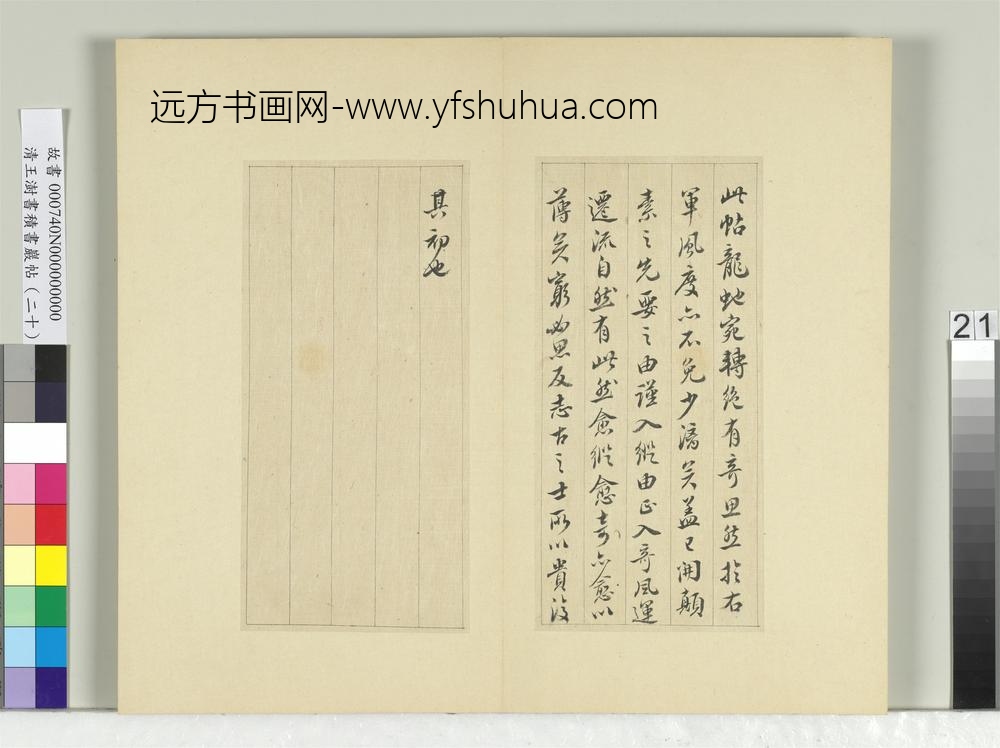 远方书画网-www.yfshuhua.com
此帖龍蛇宛轉絶有奇思然於右
軍風度亦不免少漓矣蓋已開顛
素之先要之由謹入縱由正入奇風運
遷流自然有此然愈縱愈奇亦愈以
薄矣窮必思反志古之士所以貴復
其初也
故書 000740N000000000
清王澍書積書巖帖(二十)
21